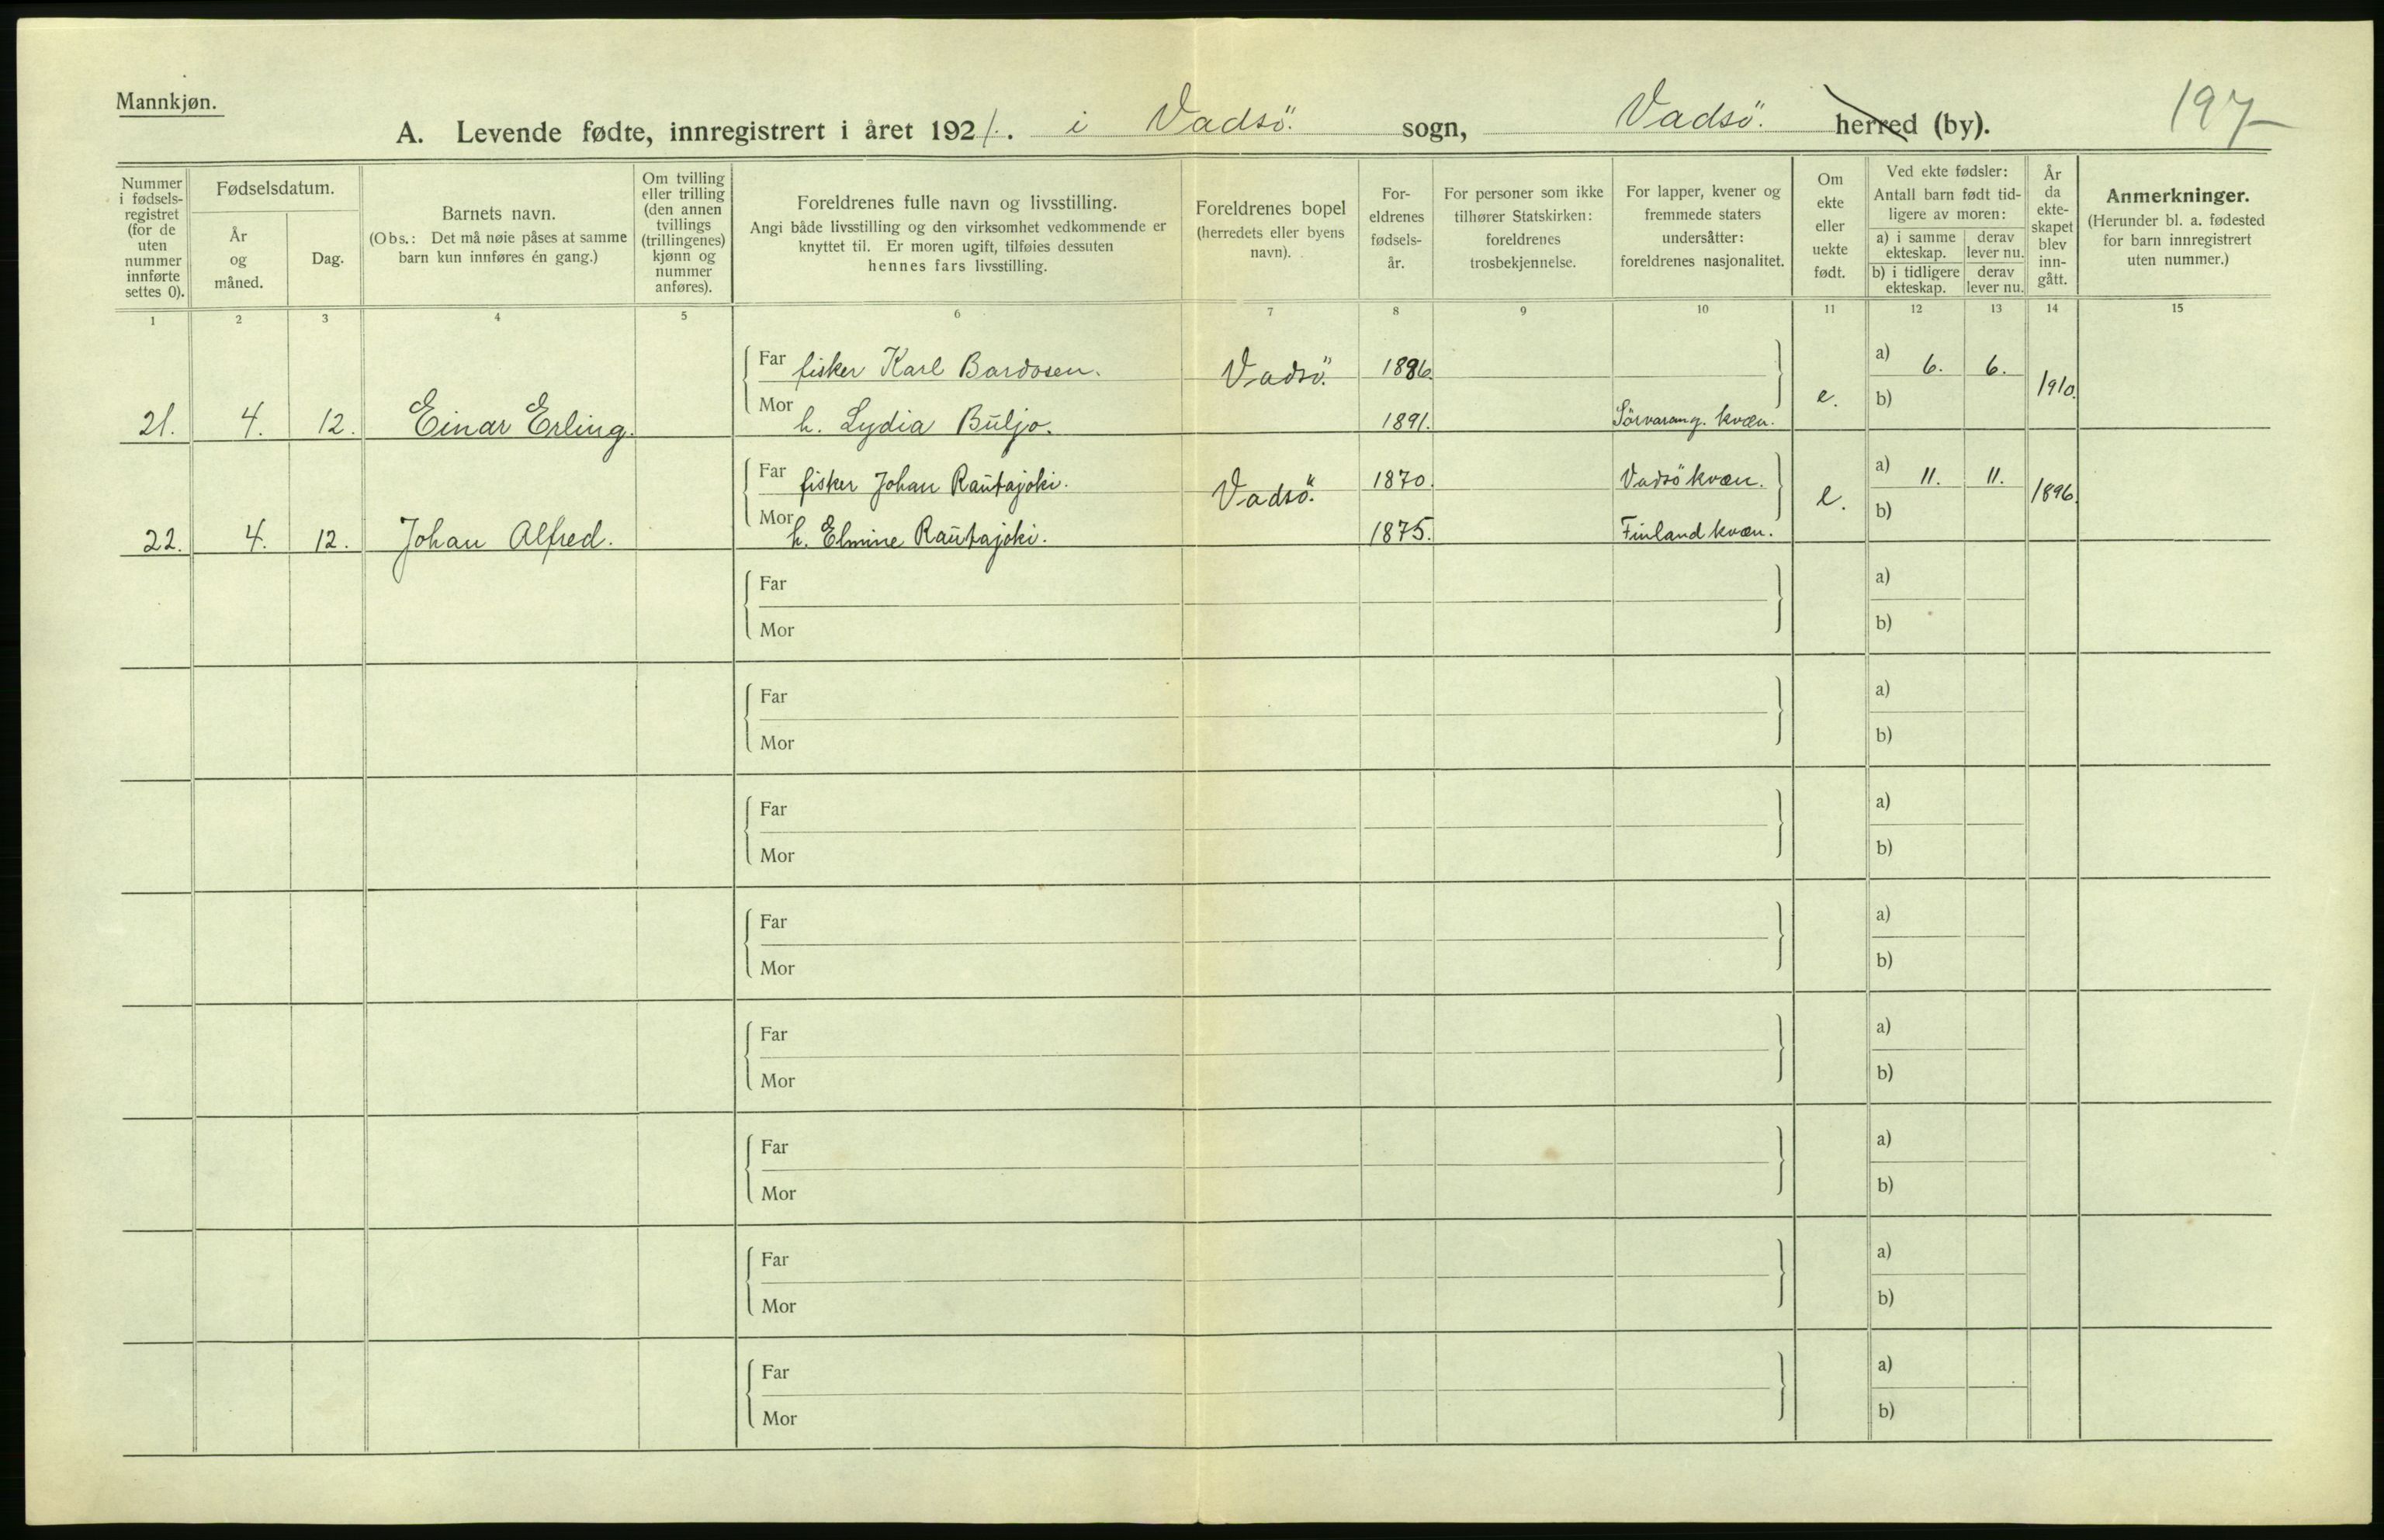 Mannkjøn.
197
A. Levende fødte, innregistrert i året 1921. i Vadsö. sogn, Vadsö. herred (by).
Nummer i fødsels-registret (for de uten nummer innførte settes 0).
Fødselsdatum.
År og måned.
Dag.
Barnets navn.
(Obs.: Det må nøie påses at samme barn kun innføres én gang.)
Om tvilling eller trilling (den annen tvillings (trillingenes) kjønn og nummer anføres).
Foreldrenes fulle navn og livsstilling.
Angi både livsstilling og den virksomhet vedkommende er knyttet til. Er moren ugift, tilføies dessuten hennes fars livsstilling.
Foreldrenes bopel (herredets eller byens navn).
For-eldrenes fødsels-år.
For personer som ikke tilhører Statskirken: foreldrenes trosbekjennelse.
For lapper, kvener og fremmede staters undersåtter: foreldrenes nasjonalitet.
Om ekte eller uekte født.
Ved ekte fødsler:
Antall barn født tid-ligere av moren:
a) i samme ekteskap.
derav lever nu.
b) i tidligere ekteskap.
derav lever nu.
År da ekte-skapet blev inn-gått.
Anmerkninger.
(Herunder bl. a. fødested for barn innregistrert uten nummer.)
1 2 3 4 5 6 7 8 9 10 11 12 13 14 15
Far fisker Karl Bardosen. Vadsö. 1886. a) 6. 6. 1910.
21. 4. 12. Einar Erling. Mor h. Lydia Buljo. 1891. Sörvarang. kvæn. e. b)
Far fisker Johan Rautajoki. Vadsö. 1870. Vadsö kvæn. a) 11. 11. 1896.
22. 4. 12. Johan Alfred. Mor h. Elmine Rautajoki. 1875. Finland kvæn. e. b)
Far a)
Mor b)
Far a)
Mor b)
Far a)
Mor b)
Far a)
Mor b)
Far a)
Mor b)
Far a)
Mor b)
Far a)
Mor b)
Far a)
Mor b)